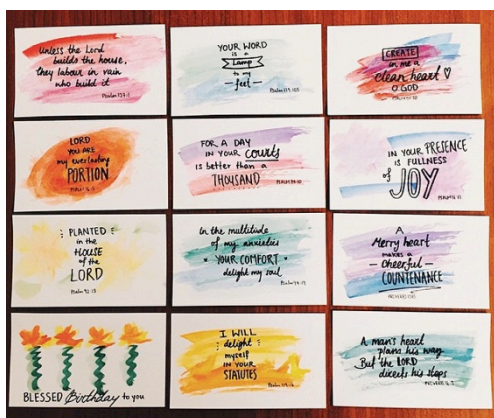 unless the Lord
builds the house,
they labour in vain
who build it
Psalm 127:1
YOUR WORD
is a
Lamp
to my
feet
Psalm 119:105
CREATE
in me a
clean heart
O GOD
LORD
YOU ARE
my everlasting
PORTION
FOR A DAY
IN YOUR courts
is better than a
THOUSAND
IN YOUR PRESENCE
IS FULLNESS
of
JOY
PLANTED
in the
HOUSE
of the
LORD
Psalm 92:13
In the multitude
of my anxieties
YOUR COMFORT
delight my soul
Psalm 94:19
A
Merry heart
makes a
Cheerful
COUNTENANCE
BLESSED Birthday to you
I WILL
delight
myself
IN YOUR
STATUTES
A man's heart
plans his way
But the LORD
directs his steps